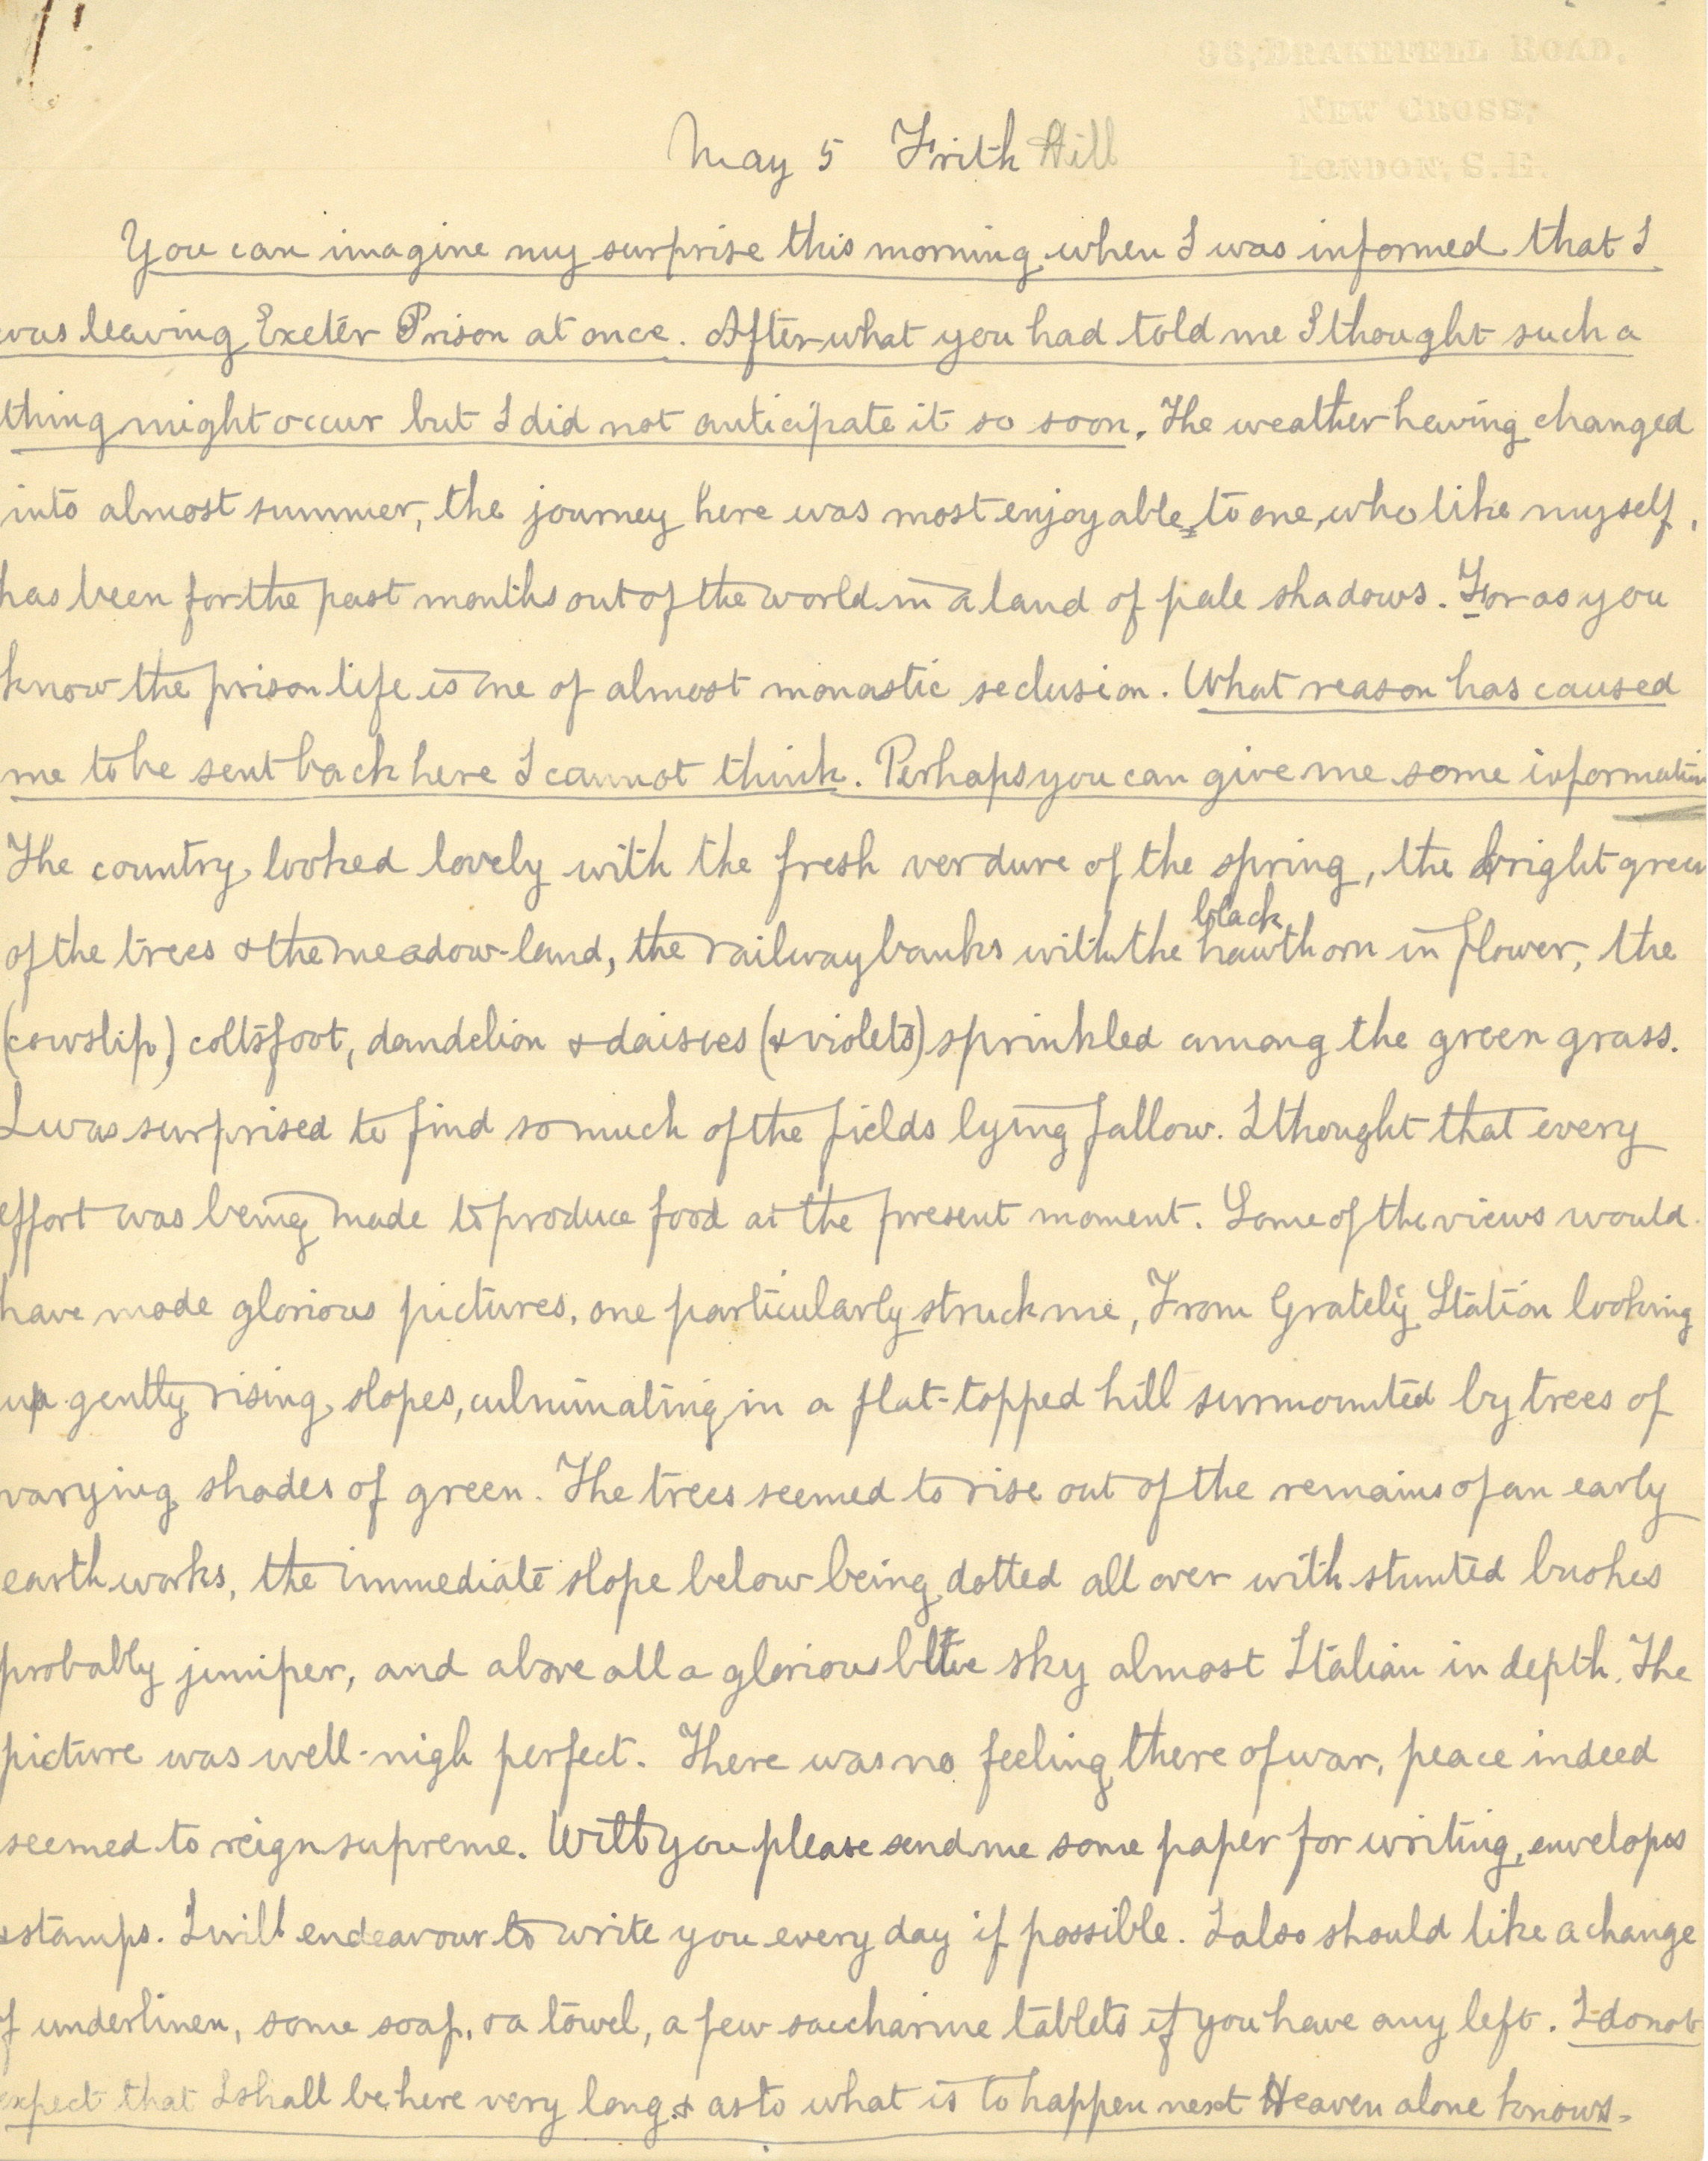 98, DRAKEFELL ROAD,
NEW CROSS,
LONDON, S.E.
May 5 Frith Hill
You can imagine my surprise this morning when I was informed that I
was leaving Exeter Prison at once. After what you had told me I thought such a
thing might occur but I did not anticipate it so soon. The weather having changed
into almost summer, the journey here was most enjoyable, to one, who like myself,
has been for the past months out of the world in a land of pale shadows. For as you
know the prison life is one of almost monastic seclusion. What reason has caused
me to be sent back here I cannot think. Perhaps you can give me some information
The country looked lovely with the fresh verdure of the spring, the bright green
black
of the trees & the meadow-land, the railway banks with the hawthorn in flower, the
(cowslip) coltsfoot, dandelion & daisies (& violets) sprinkled among the green grass.
I was surprised to find so much of the fields lying fallow. I thought that every
effort was being made to produce food at the present moment. Some of the views would
have made glorious pictures, one particularly struck me, From Grately Station looking
up gently rising slopes, culminating in a flat-topped hill surmounted by trees of
varying shades of green. The trees seemed to rise out of the remains of an early
earthworks, the immediate slope below being dotted all over with stunted bushes
probably juniper, and above all a glorious blue sky almost Italian in depth. The
picture was well-nigh perfect. There was no feeling there of war, peace indeed
seemed to reign supreme. Will you please send me some paper for writing, envelopes
& stamps. I will endeavour to write you every day if possible. I also should like a change
of underlinen, some soap, & a towel, a few saccharine tablets if you have any left. I do not
expect that I shall be here very long & as to what is to happen next Heaven alone knows.